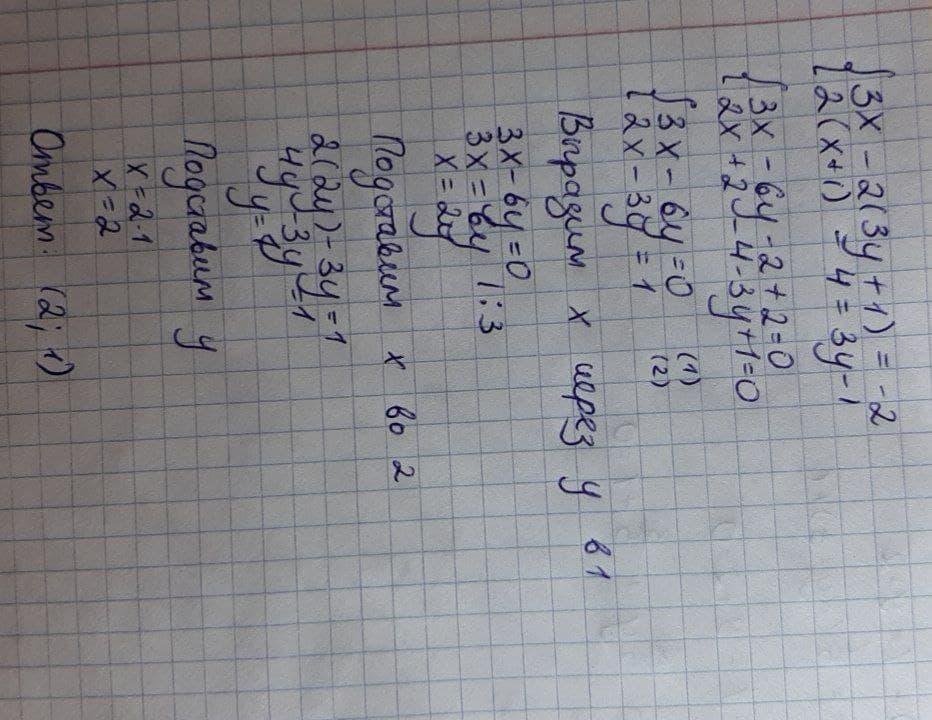 { 3x - 2(3y + 1) = -2
{ 2(x+1) - 4 = 3y - 1
{ 3x - 6y - 2 + 2 = 0
{ 2x + 2 - 4 - 3y + 1 = 0
{ 3x - 6y = 0 (1)
{ 2x - 3y = 1 (2)
Выразим x через y в 1
3x - 6y = 0
3x = 6y |:3
x = 2y
Подставим x во 2
2(2y) - 3y = 1
4y - 3y = 1
y = 1
Подставим y
x = 2·1
x = 2
Ответ: (2; 1)